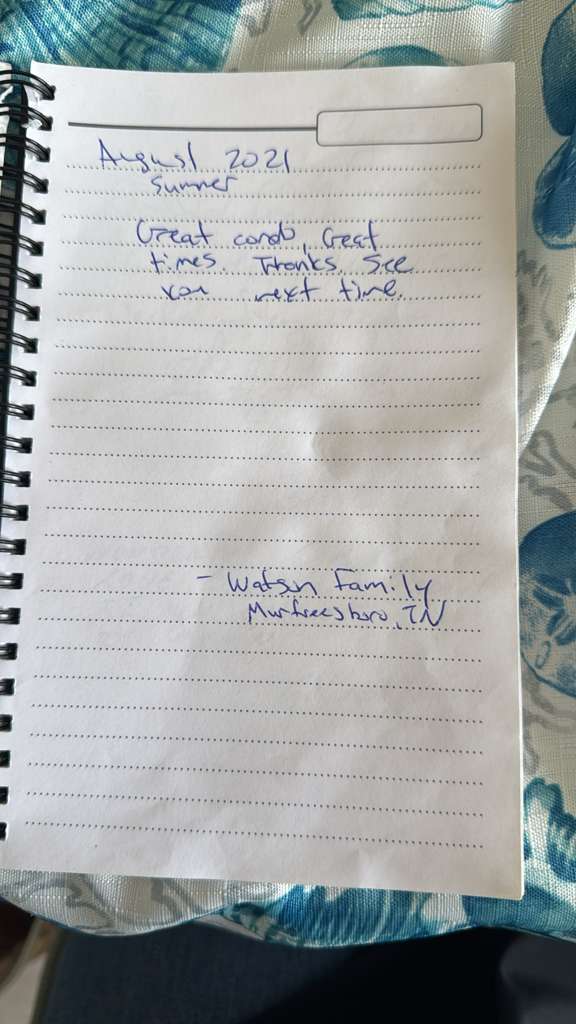 August 2021
Summer
Great condo, Great
times. Thanks. See
you next time.
- Watson Family
Murfreesboro, TN